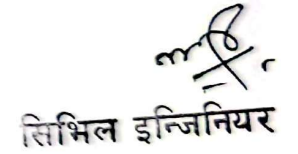 सिभिल इन्जिनियर